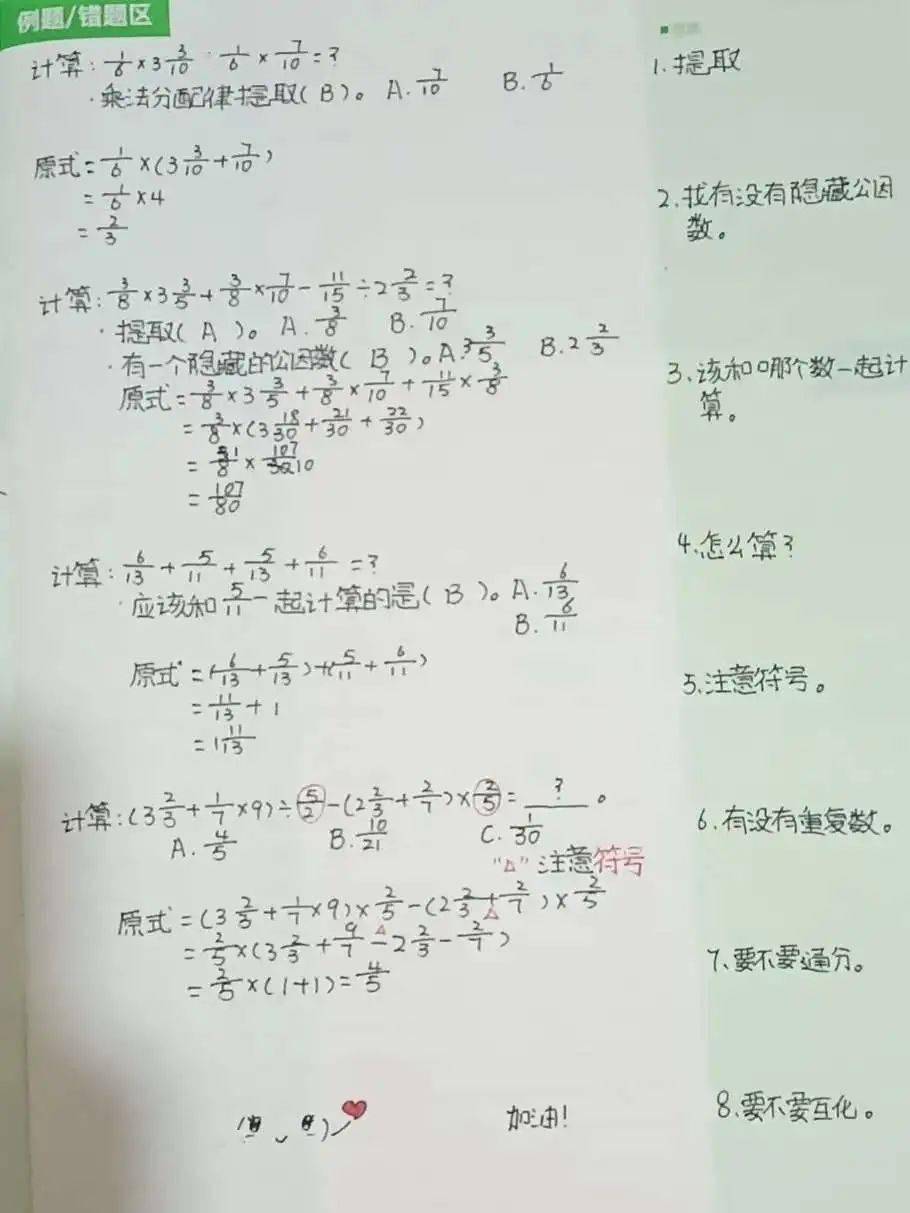 例题/错题区
计算: 1/6 × 3 3/10 · 1/6 × 7/10 = ?
· 乘法分配律提取( B )。 A. 7/10 B. 1/6
原式 = 1/6 × (3 3/10 + 7/10)
= 1/6 × 4
= 2/3
计算: 3/8 × 3 3/5 + 3/8 × 7/10 - 11/15 ÷ 2 2/3 = ?
· 提取( A )。 A. 3/8 B. 7/10
· 有一个隐藏的公因数( B )。A. 3 3/5 B. 2 2/3
原式 = 3/8 × 3 3/5 + 3/8 × 7/10 + 11/15 × 3/8
= 3/8 × (3 18/30 + 21/30 + 22/30)
= 1/8 × 107/10
= 107/80
计算: 6/13 + 5/11 + 5/13 + 6/11 = ?
· 应该和 5/11 一起计算的是( B )。A. 6/13
B. 6/11
原式 = (6/13 + 5/13) + (5/11 + 6/11)
= 11/13 + 1
= 1 11/13
计算: (3 2/3 + 1/7 × 9) ÷ 5/2 - (2 2/3 + 2/7) × 2/5 = ? 。
A. 4/5 B. 10/21 C. 1/30
"△" 注意符号
原式 = (3 2/3 + 1/7 × 9) × 2/5 - (2 2/3 + 2/7) × 2/5
= 2/5 × (3 2/3 + 9/7 - 2 2/3 - 2/7)
= 2/5 × (1+1) = 4/5
加油!
1. 提取
2. 找有没有隐藏公因
数。
3. 该和哪个数一起计
算。
4. 怎么算?
5. 注意符号。
6. 有没有重复数。
7. 要不要通分。
8. 要不要互化。